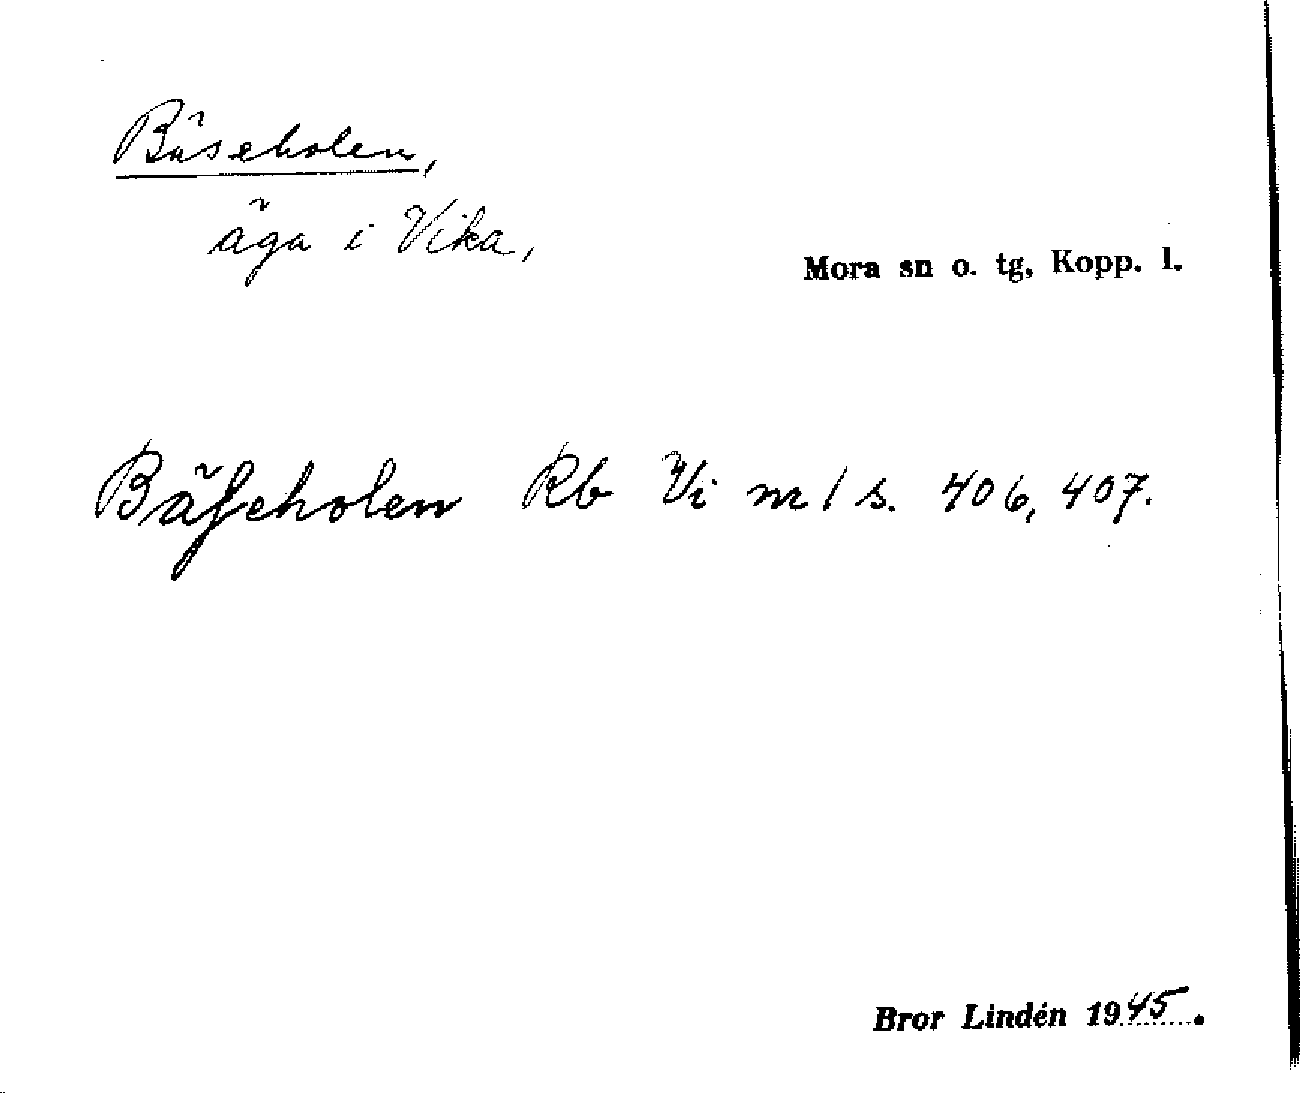 Bäseholen,
äga i Vika,
Mora sn o. tg, Kopp. l.
Bäſeholen Rb Vi m 1 s. 406, 407.
Bror Lindén 1945.